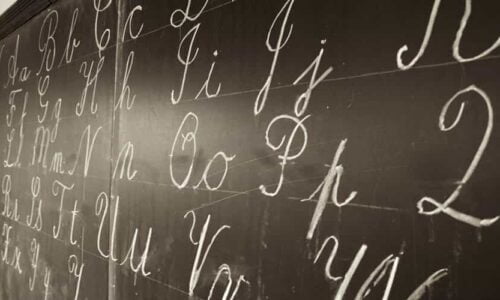 A a B b C c D d
F f G g H h I i J j K
L l M m N n O o P p Q
R r S s T t U u V v W
X x Y y